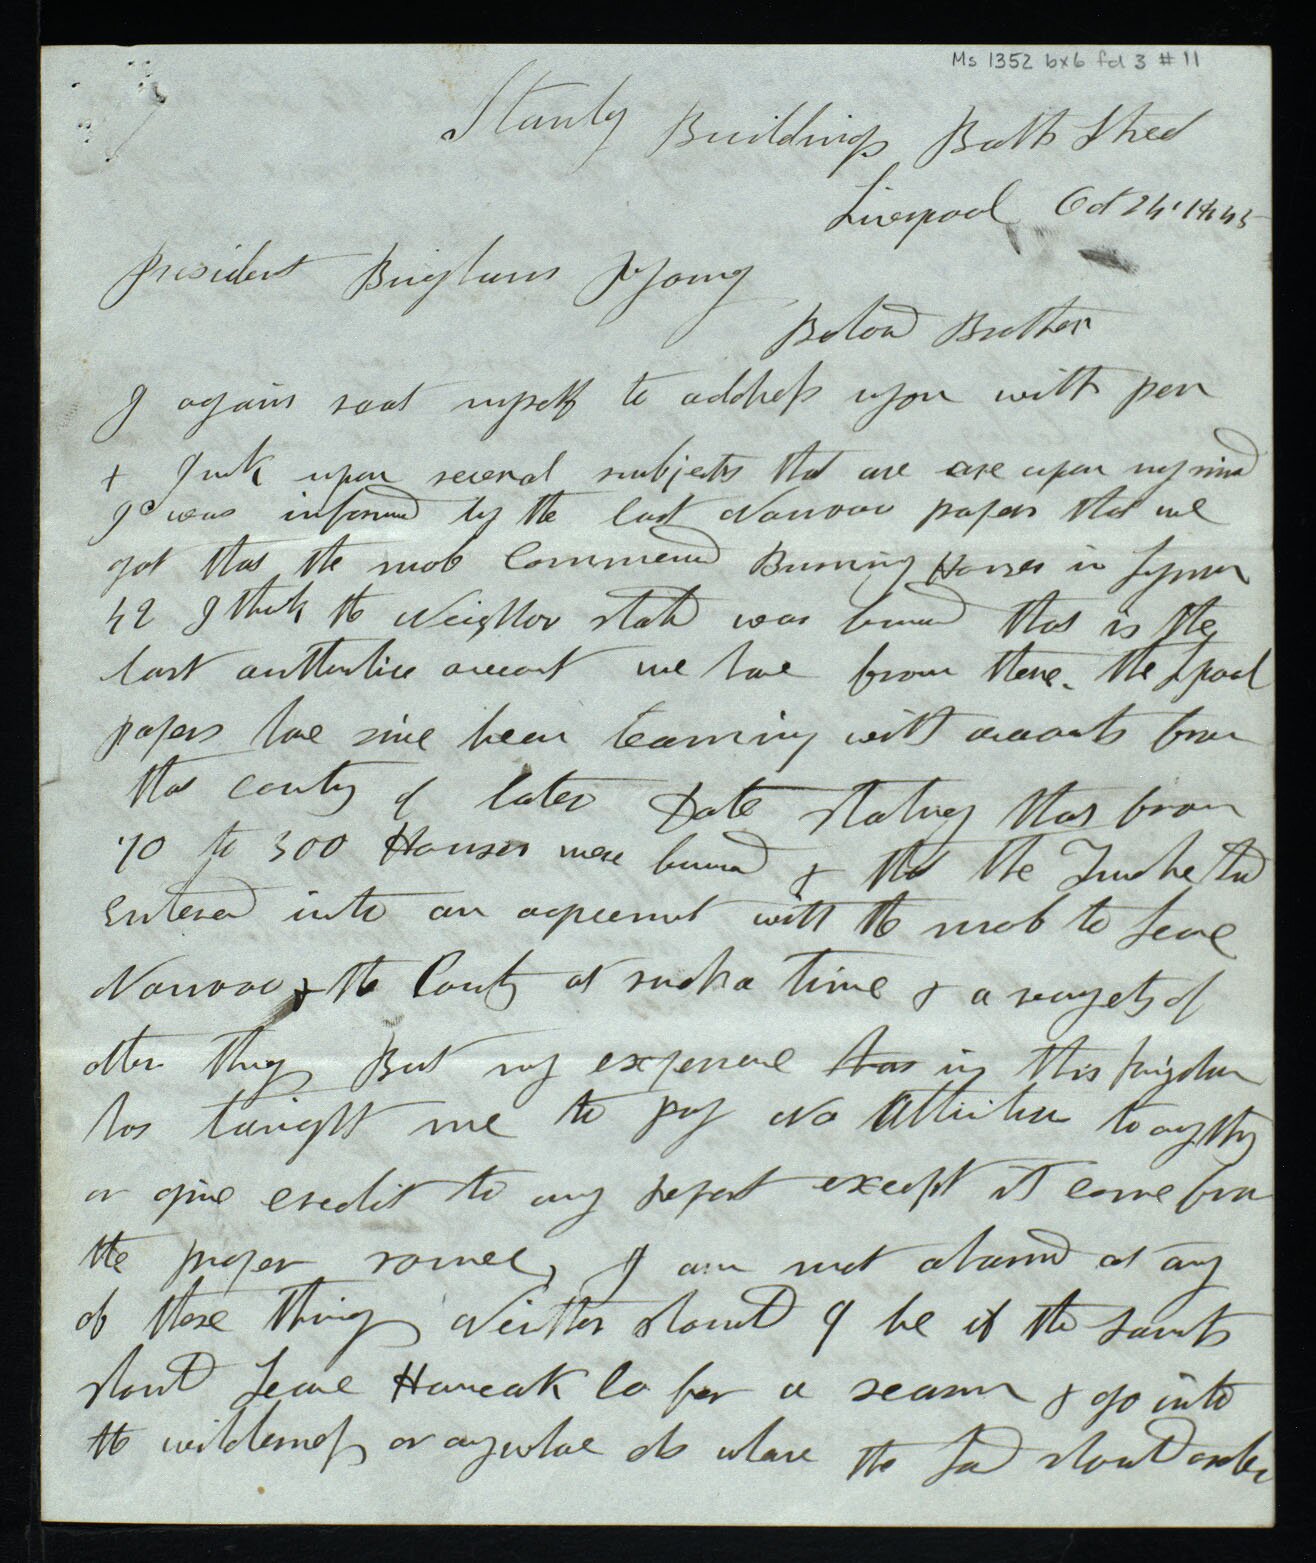 Ms 1352 bx6 fd 3 #11
Stanly Buildings Bath Street
Liverpool Oct 24th 1845
President Brigham Young
Belovd Brother
I again seat myself to address you with pen
& Ink upon several subjects that are are upon my mind
I was informd by the last Nauvoo papers that we
got that the mob Commencd Burning Houses in Lyma
42 I think the Neighbor stated was burnd that is the
last authentic account we have from there. the Lpool
papers have since been teaming with accounts from
that county of later Date stating that from
70 to 300 Houses were burnd & that the Twelve had
entered into an agreement with the mob to leave
Nauvoo & the County at such a time & a vanyety of
other things But my experience has in this kingdom
has taught me to pay No Attention to any thing
or give credit to any report except it come from
the proper source, I am not alarmd at any
of these things Neither should I be if the Saints
should leave Hancock Co for a season & go into
the wilderness or anywhare els whare the Lord should order